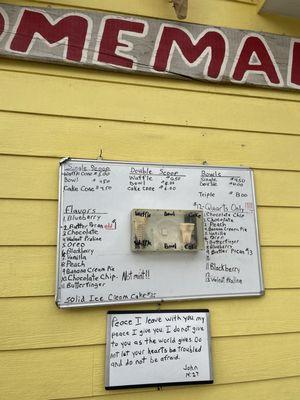 HOMEMA
Single Scoop
Waffle Cone
Bowl 4.50
Cake Cone 4.50
Double Scoop
Waffle
Bowl
Cake
Bowls
Single
Double
Triple
Flavors
1. Blueberry
2. Butter Pecan
3. Chocolate
4. Walnut Praline
5. Oreo
6. Blackberry
7. Vanilla
8. Peach
9. Banana Cream Pie
10. Chocolate Chip - Not mint!!
11. Butterfinger
Solid Ice Cream Cake
Waffle
Bowl
Cake
Quarts Only
1. Chocolate Chip
2. Chocolate
3. Peach
4. Banana Cream Pie
5. Vanilla
6. Oreo
7. Butterfinger
8. Blueberry
9. Butter Pecan
11. Blackberry
12. Walnut Praline
Peace I leave with you my
peace I give you. I do not give
to you as the world gives. Do
not let your hearts be troubled
and do not be afraid.
John
14:27